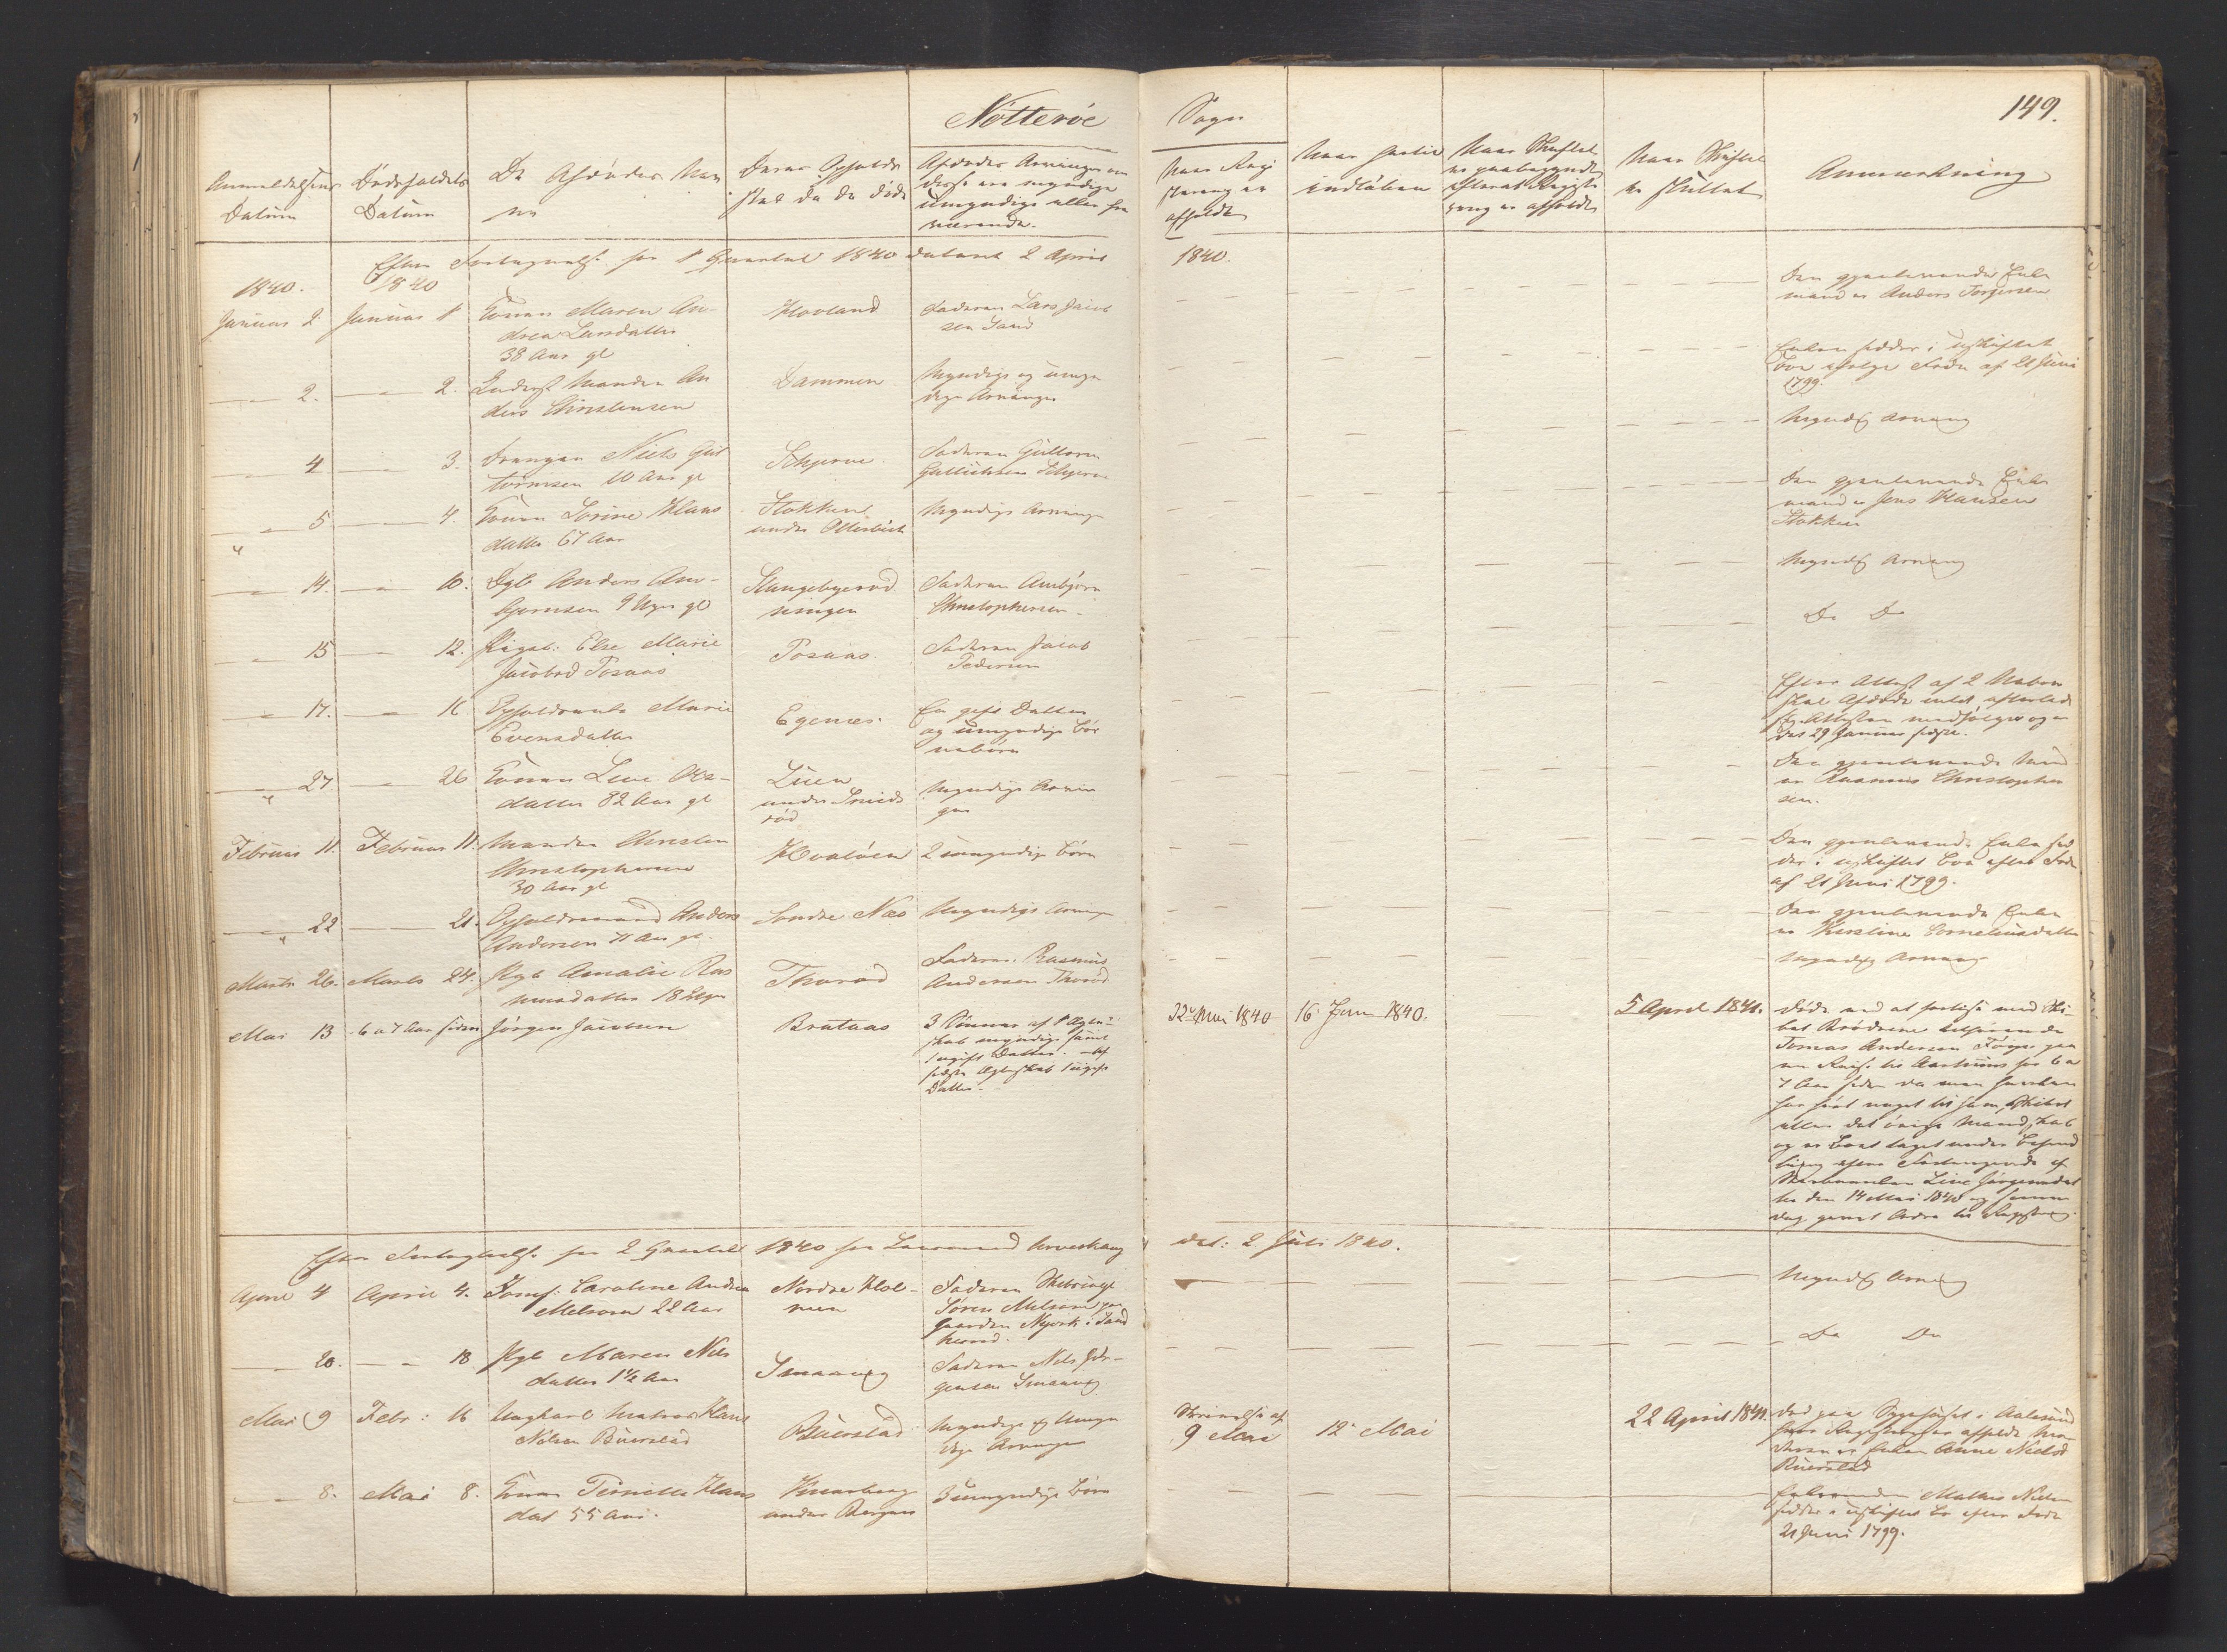 Nötteröe Sogn
149.
Anmeldelsens
Datum
Dödsfaldets
Datum
De Afdödes Nav
ne
Deres Opholds
sted da de döde
Afdödes Arvinger om
disse ere myndige
umyndige eller fra
værende.
Naar Regi
strering er
afholdt
Naar
indløben
Naar Skiftet
er paabegyndt
efterat Registe
ring er afholdt
Naar Skiftet
er sluttet
Anmærkning
Efter Fortegnelse for 1 Quartal 1840 dateret 2 April 1840.
1840.
1840
Januar 2
Januar 1
Konen Maren An-
drea Larsdatter
38 Aar gl
Hovland
Faderen Lars Jacob
sen Sand
Den gjenlevende Enke
mand er Anders Torgersen
2.
2.
Manden An
ders Christensen
Dammen
Myndige og umyn
dige Arvinger
Enken sidder i uskiftet
Boe ifølge Frdn af 21 Juni
1799.
4
3.
Drengen Niels Gut
tormsen 10 Aar gl
Skjerve
Faderen Guttorm
Gullichsen Skjerve
Myndig Arving
5
4.
Konen Sorine Hans
datter 67 Aar
Stokken
under Ollesbæk
Myndige Arvinger
Den gjenlevende Enke
mand er Jens Hansen
Stokken
14.
10.
Dgb Anders Am-
bjørnsen 9 Uger gl
Stangebyeröd
Faderen Ambjörn
Christophersen
Myndig Arving
15
12.
Pigeb: Else Marie
Jacobsd Tosaas
Tosaas
Faderen Jacob
Pedersen
Do Do
17.
16
Opholdsenke Marie
Evensdatter
Egenæs.
En gift Datter
og umyndige Bör
nebörn
Efter Attest af 2 Naboer
skal Afdøde intet efterladt
sig. Attesten medfølger og er
dat 29 Januar sidste.
27
26
Konen Live Ols-
datter 82 Aar gl
Lien
under Smids
röd
Myndige Arvin
ger
Den gjenlevende Mand
er Rasmus Christopher
sen.
Februar 11.
Februar 11.
Manden Christen
Christophersen
30 Aar gl
Hvalöen
2 umyndige Börn
Den gjenlevende Enke sid
der i uskiftet Boe efter Frdn
af 21 Juni 1799.
22
21.
Opholdsmand Anders
Andersen 71 Aar gl.
Söndre Næs
Myndige Arvinger
Den gjenlevende Enke
er Kirstine Corneliusdatter
Marts 26.
Marts 24.
Pgb Amalie Ras
musdatter 18 Uger
Thoröd
Faderen Rasmus
Andersen Thoröd
Myndig Arving
Mai 13
6 a 7 Aar siden
Jörgen Jacobsen
Brataas
3 Sönner af 1 Ægte-
skab myndige samt
1 ugift Datter. Af
sidste Ægteskab 1 ugift
Datter.
22 Mai 1840
16 Juni 1840.
5 April 1841.
Døde ved at forlise med Ski-
bet Brödrene tilhörende
Tomas Andersen Töigen paa
en Reise til Aarhuus for 6 a
7 Aar siden da man hverken
har hört noget til ham, Skibet
eller det övrige Mandskab
og er Boet taget under Behand
ling efter Forlangende af
Stervboenken Live Jörgensdat
ter den 14 Mai 1840 og samme
Dag givet Ordre til Registrering
Efter Fortegnelse for 2 Quartal 1840 fra Lensmand dat: 2 Juli 1840.
April 4
April 4.
Jomf: Caroline Andrea
Melsom 22 Aar
Nordre Hol-
men
Faderen
Sören Melsom paa
Gaarden Nyvirk i Sand
herred.
Myndig Arving
20.
18
Pgb Maren Niels
datter 1½ Aar
Smaavig
Faderen Niels Jör-
gensen Smaavig
Do Do
Mai 9
Febr: 16
Ungkarl Matros Hans
Nilsen Buerstad
Buerstad
Myndige og Umyn
dige Arvinger
Skrivelse af
9 Mai
12 Mai
22 April 1841.
Död paa Sygehuset i Aalesund
hvor Registrering er afholdt Mo-
deren er Enken Anne Nielsd
Buerstad
8.
Mai 8.
Konen Pernille Hans
dat 55 Aar.
Knarberg
under Bergan
3 umyndige Börn
Enkemanden Mathis Nielsen
sidder i uskiftet Bo efter Frdn
21 Juni 1799.